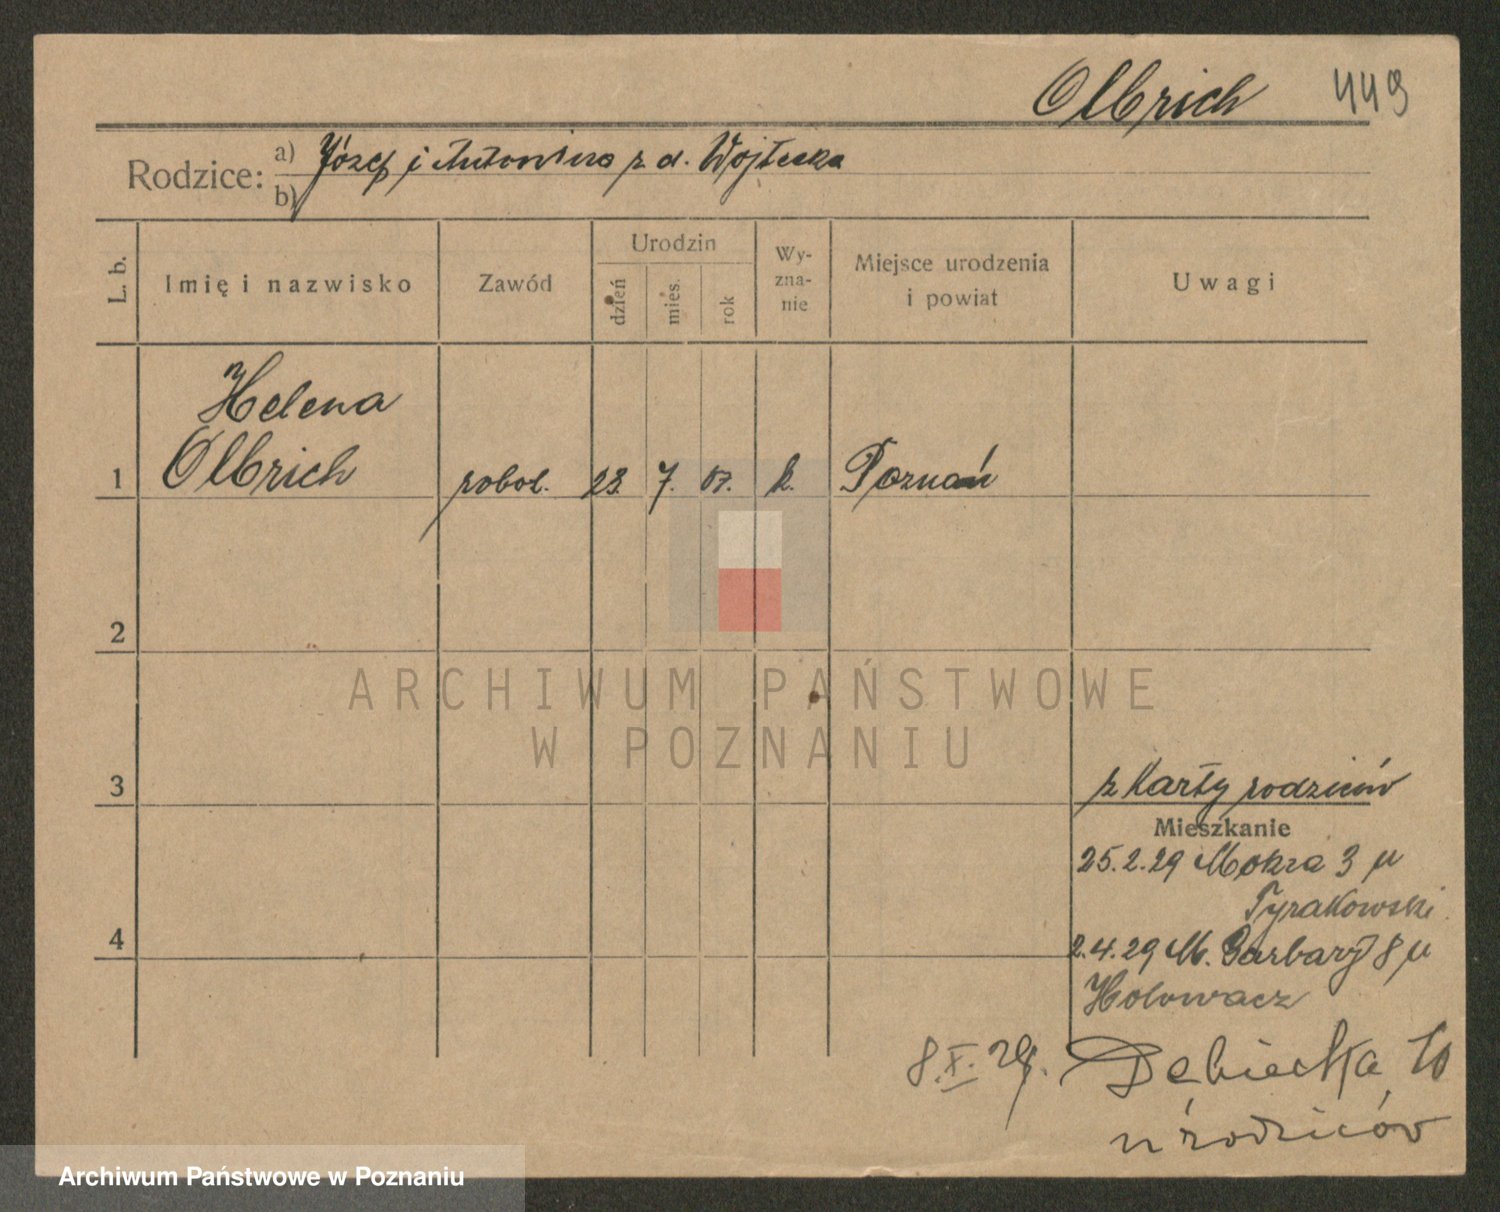 Olbrich 449
Rodzice: a) Józef i Antonina z d. Wojtecka
b)
L. b. Imię i nazwisko Zawód Urodzin dzień mies. rok Wyzna-nie Miejsce urodzenia i powiat Uwagi
Helena
1 Olbrich robot. 23. 7. 07. k. Poznań
2
ARCHIWUM PAŃSTWOWE
W POZNANIU
3 z karty rodziców
Mieszkanie
25.2.29 Mokra 3 u
Tyrakowski
4 2.4.29 M. Garbary 8 u
Holowacz
8.X.29. Dębiecka 10
u rodziców
Archiwum Państwowe w Poznaniu